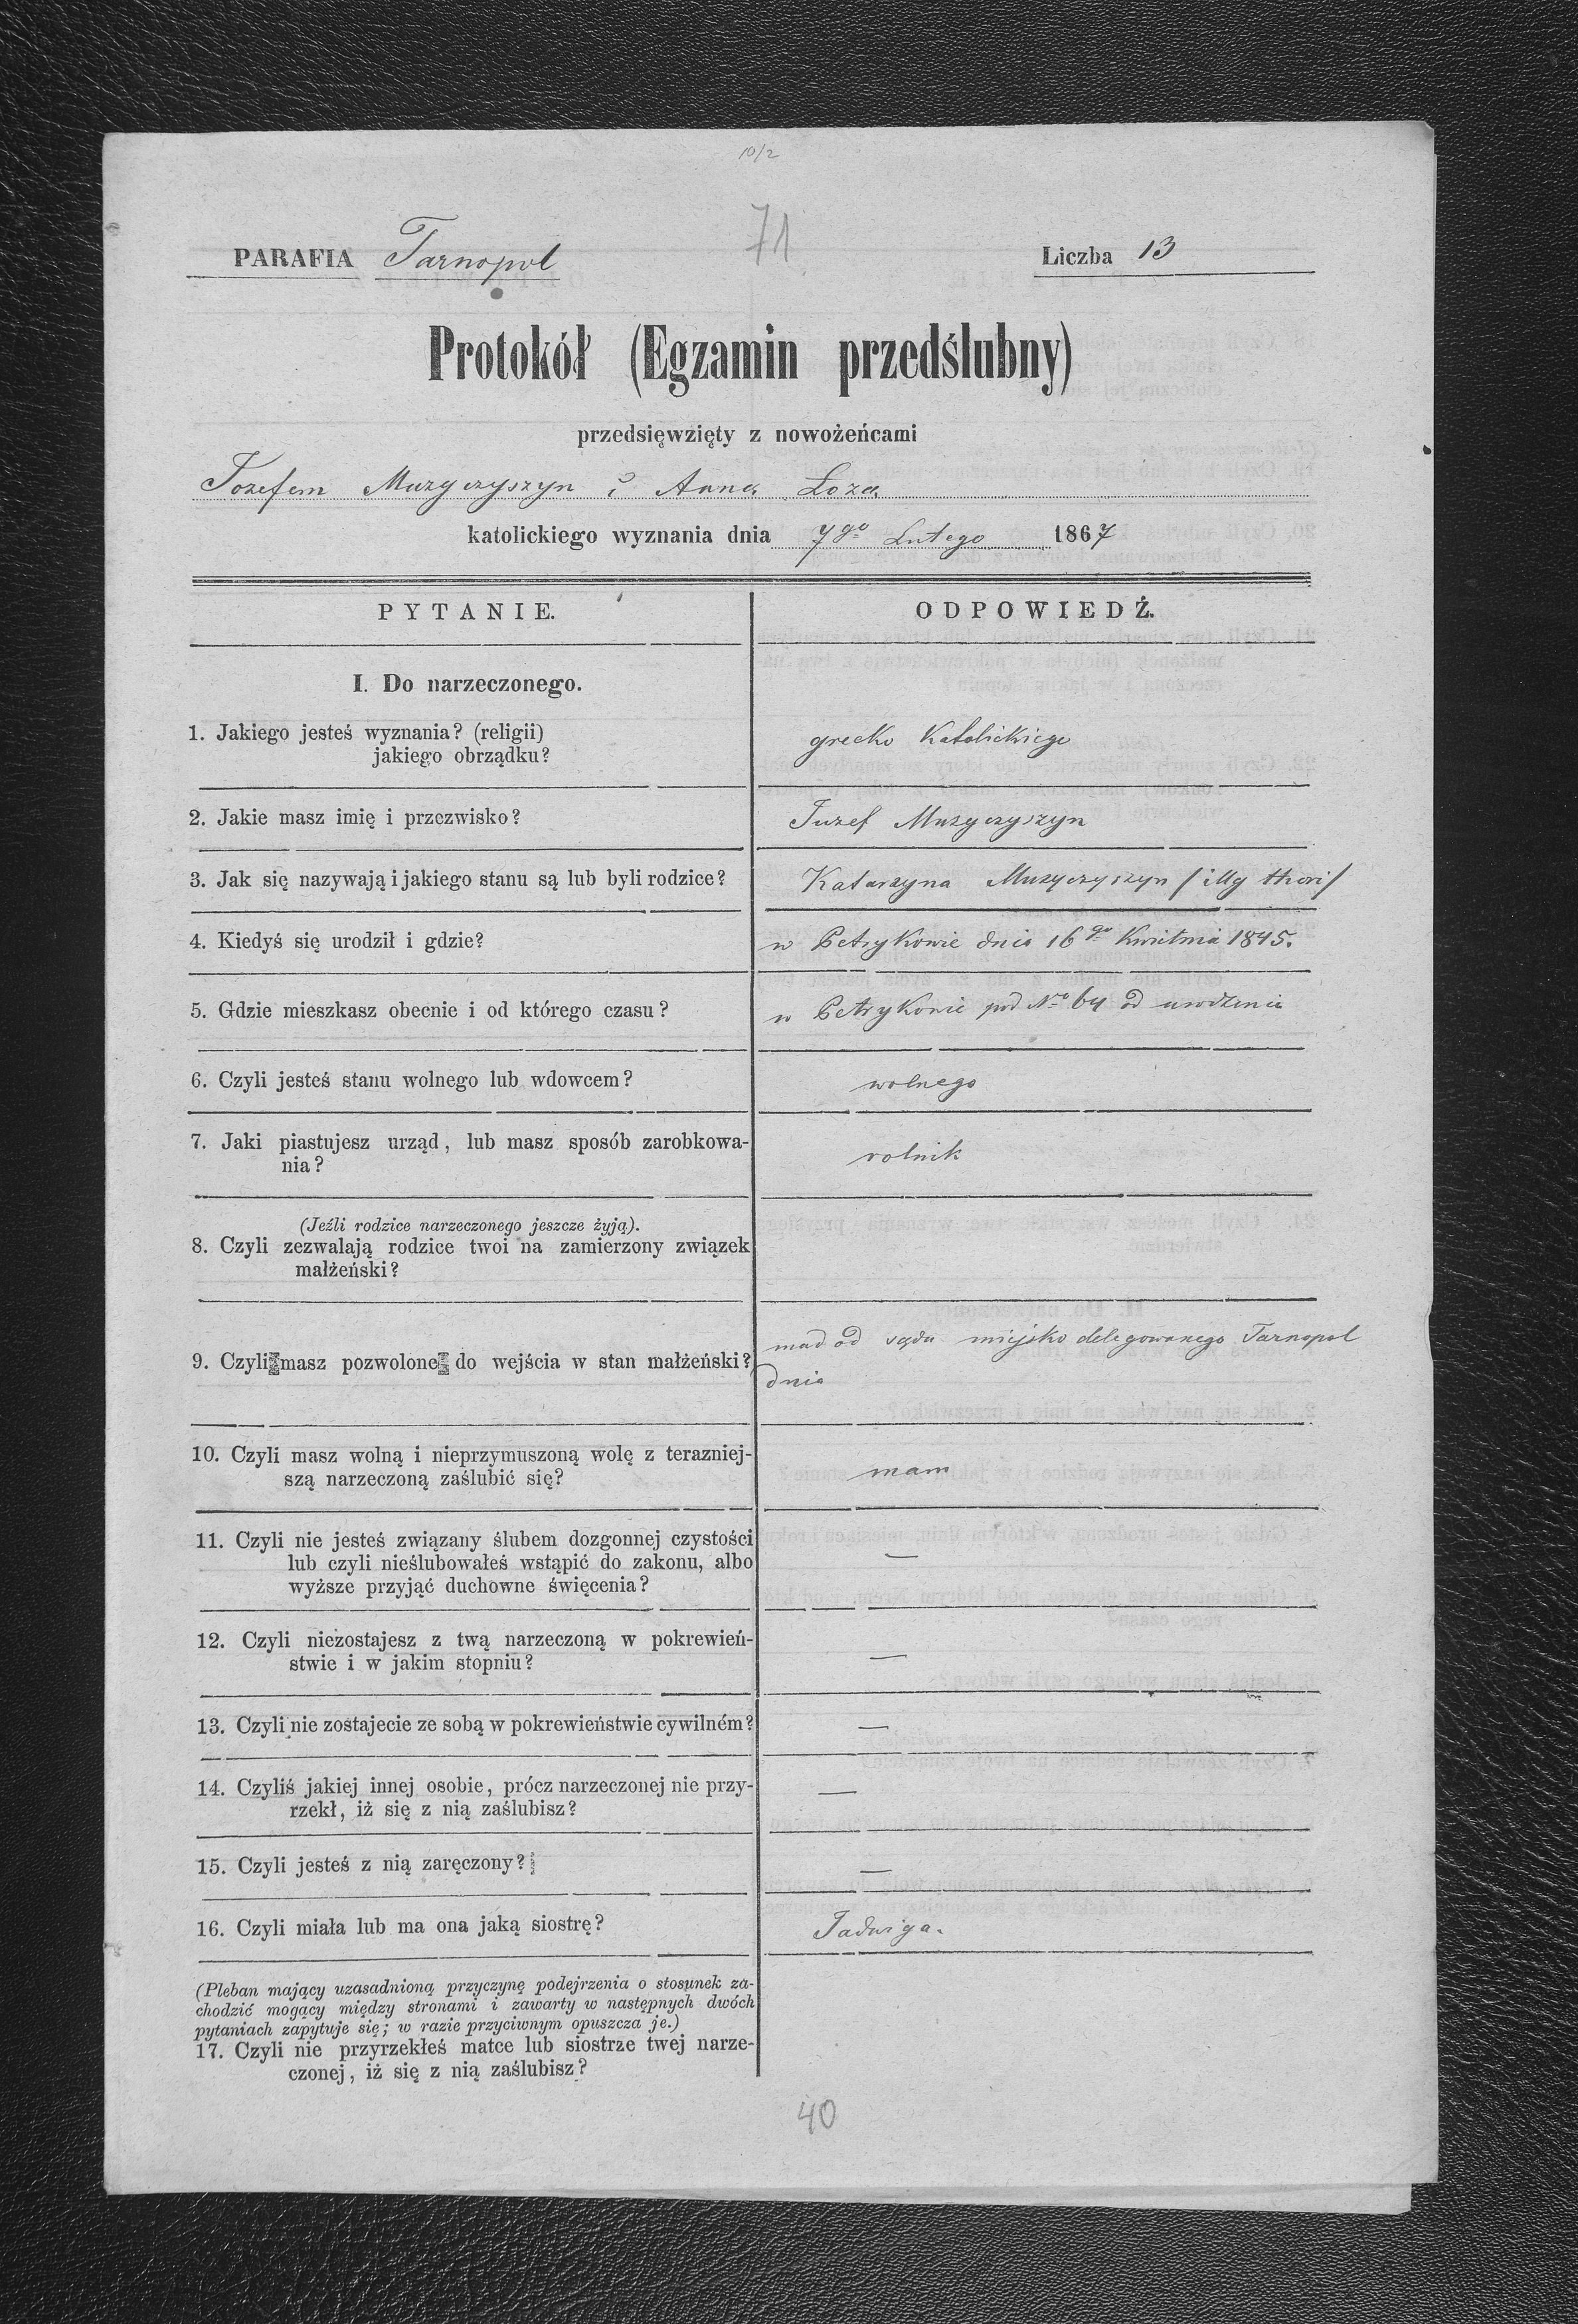 10/2
71
PARAFIA Tarnopol
Liczba 13
Protokół (Egzamin przedślubny)
przedsięwzięty z nowożeńcami
Jozefem Muzyczyszyn i Anna Loza
katolickiego wyznania dnia 7go Lutego 1867
PYTANIE.
ODPOWIEDŹ.
I. Do narzeczonego.
1. Jakiego jesteś wyznania? (religii)
jakiego obrządku?
grecko Katolickiego
2. Jakie masz imię i przezwisko?
Juzef Muzyczyszyn
3. Jak się nazywają i jakiego stanu są lub byli rodzice?
Katarzyna Muzyczyszyn / illg thori/
4. Kiedyś się urodził i gdzie?
w Petrykowie dnia 16go Kwietnia 1845.
5. Gdzie mieszkasz obecnie i od którego czasu?
w Petrykowie pod No 64 od urodzenia
6. Czyli jesteś stanu wolnego lub wdowcem?
wolnego
7. Jaki piastujesz urząd, lub masz sposób zarobkowa-
nia?
rolnik
(Jeźli rodzice narzeczonego jeszcze żyją).
8. Czyli zezwalają rodzice twoi na zamierzony związek
małżeński?
9. Czyli masz pozwolone do wejścia w stan małżeński?
mad od sądu miejsko delegowanego Tarnopol
dnia
10. Czyli masz wolną i nieprzymuszoną wolę z terazniej-
szą narzeczoną zaślubić się?
mam
11. Czyli nie jesteś związany ślubem dozgonnej czystości
lub czyli nieślubowałeś wstąpić do zakonu, albo
wyższe przyjąć duchowne święcenia?
—
12. Czyli niezostajesz z twą narzeczoną w pokrewień-
stwie i w jakim stopniu?
—
13. Czyli nie zostajecie ze sobą w pokrewieństwie cywilném?
—
14. Czyliś jakiej innej osobie, prócz narzeczonej nie przy-
rzekł, iż się z nią zaślubisz?
—
15. Czyli jesteś z nią zaręczony?
—
16. Czyli miała lub ma ona jaką siostrę?
Jadwiga.
(Pleban mający uzasadnioną przyczynę podejrzenia o stosunek za-
chodzić mogący między stronami i zawarty w następnych dwóch
pytaniach zapytuje się; w razie przyciwnym opuszcza je.)
17. Czyli nie przyrzekłeś matce lub siostrze twej narze-
czonej, iż się z nią zaślubisz?
40